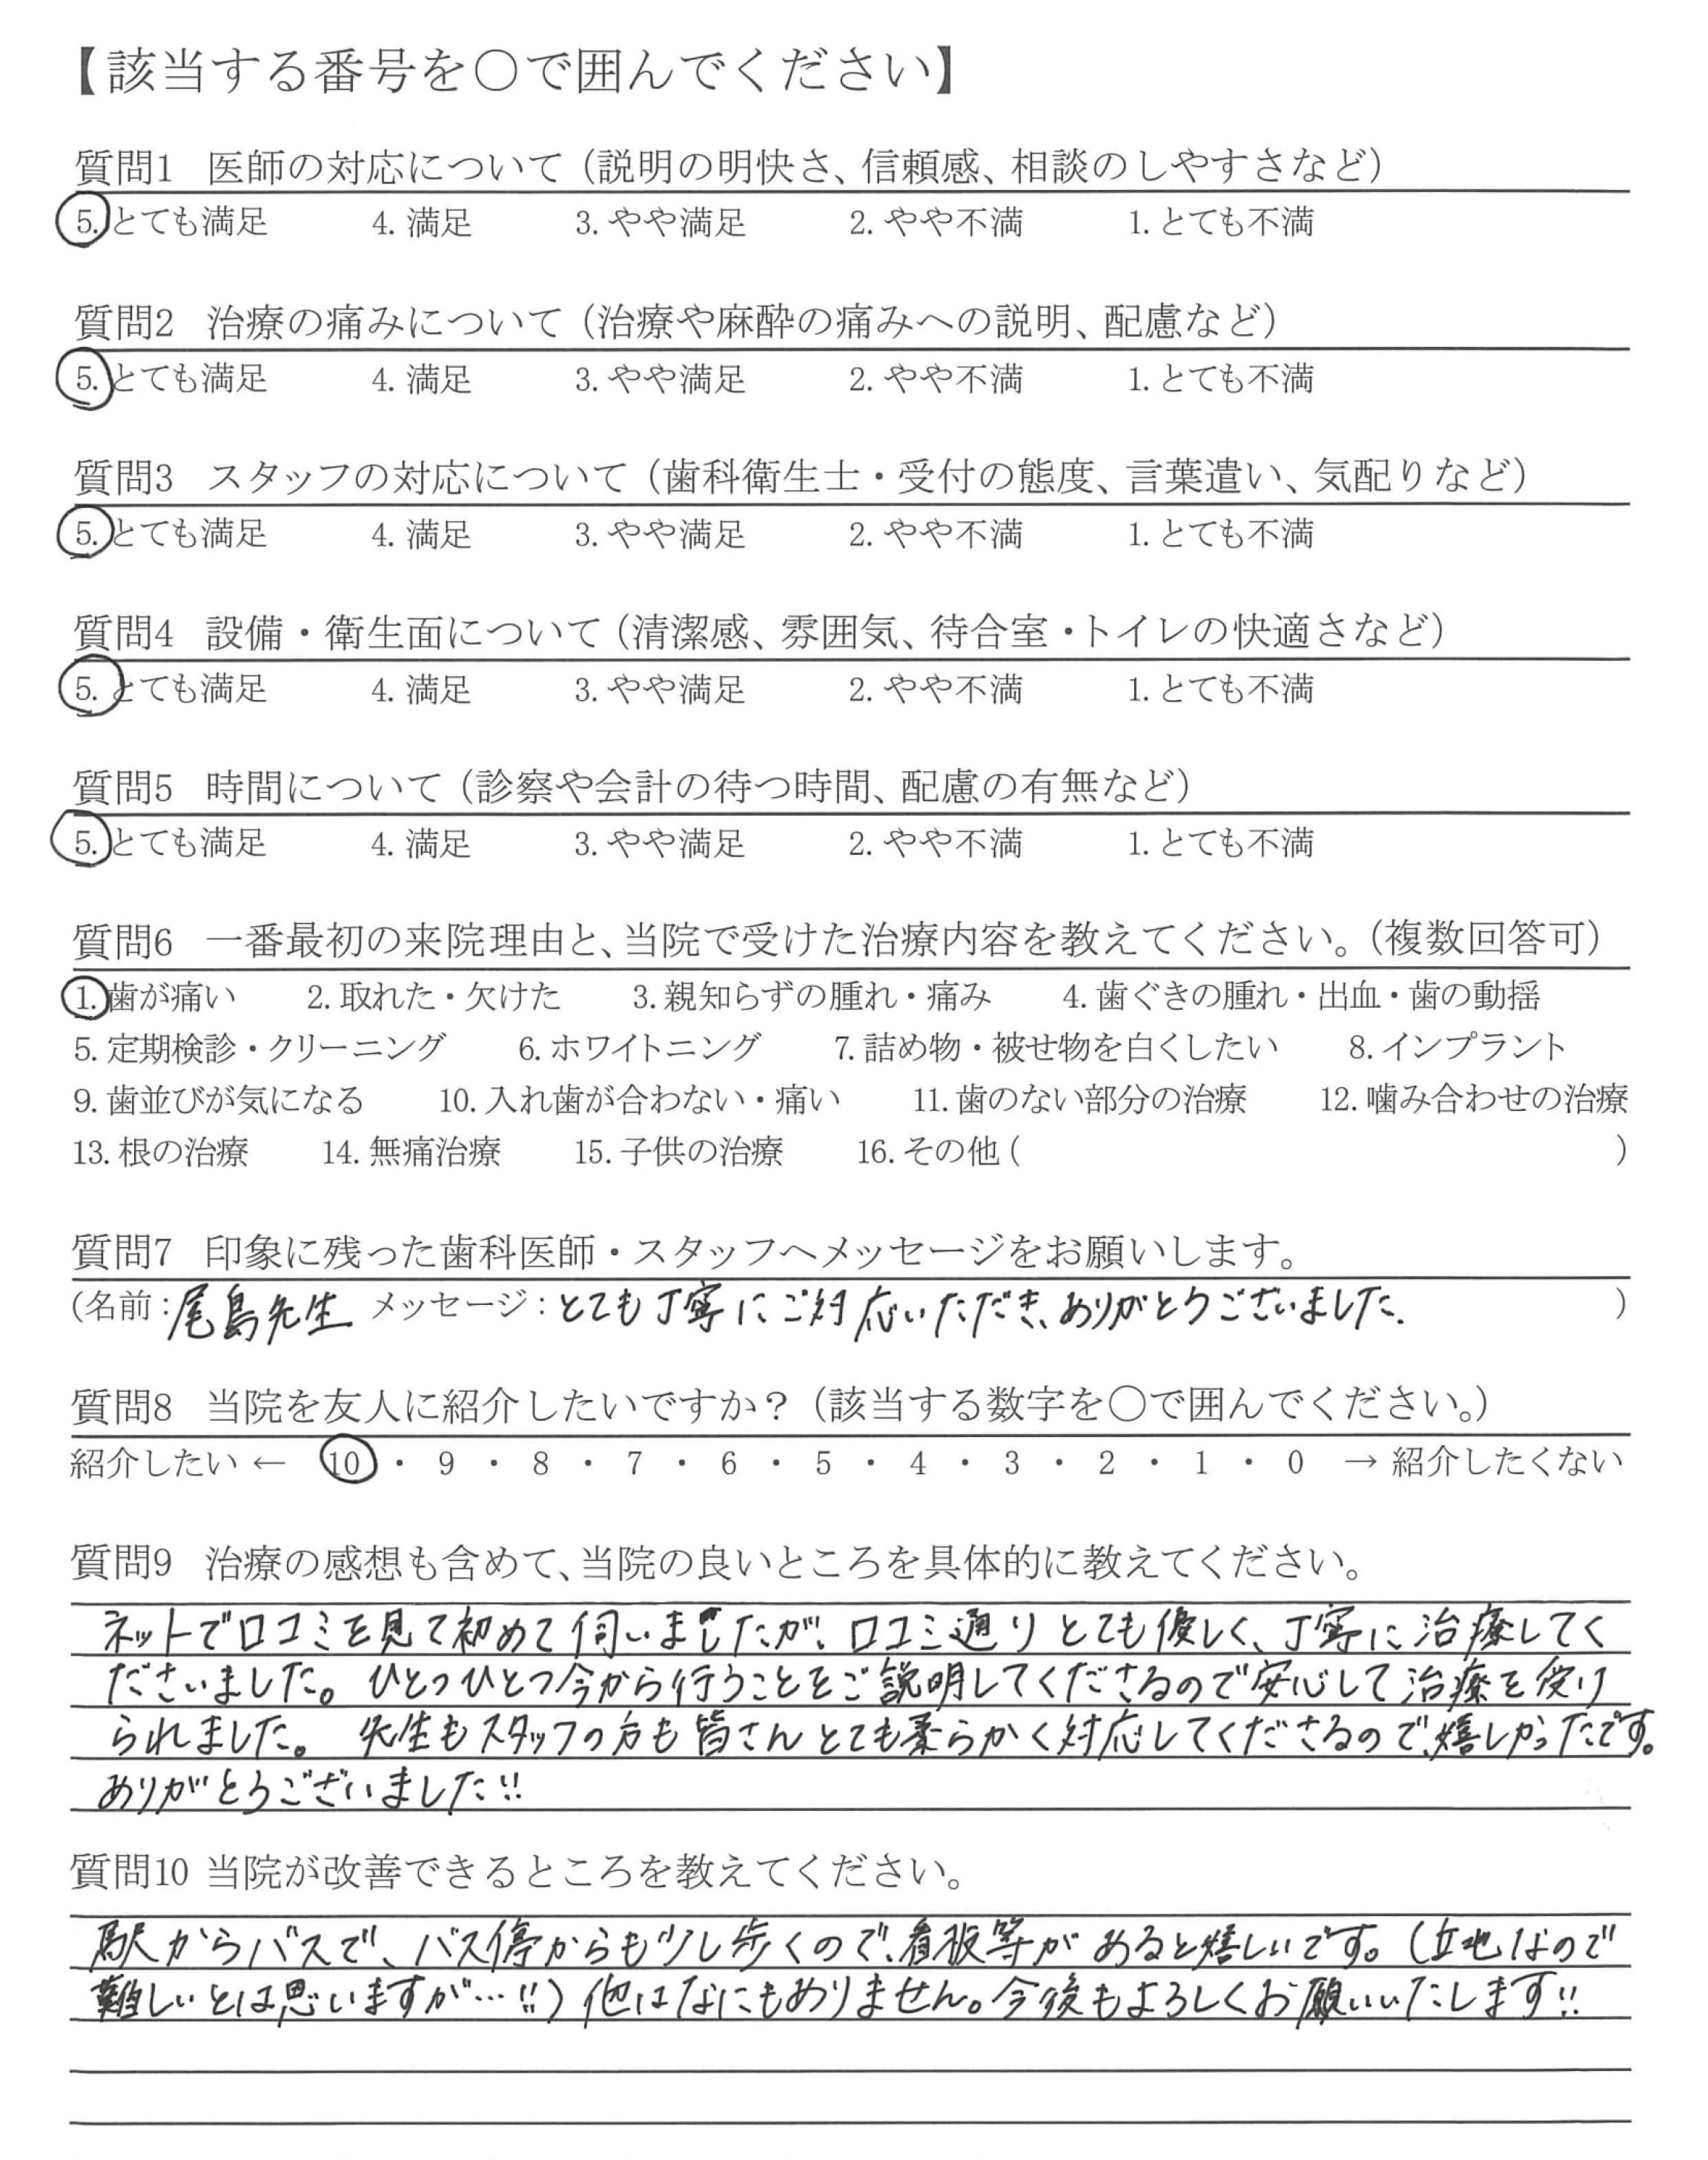 【該当する番号を〇で囲んでください】
質問1 医師の対応について（説明の明快さ、信頼感、相談のしやすさなど）
5. とても満足 4. 満足 3. やや満足 2. やや不満 1. とても不満
質問2 治療の痛みについて（治療や麻酔の痛みへの説明、配慮など）
5. とても満足 4. 満足 3. やや満足 2. やや不満 1. とても不満
質問3 スタッフの対応について（歯科衛生士・受付の態度、言葉遣い、気配りなど）
5. とても満足 4. 満足 3. やや満足 2. やや不満 1. とても不満
質問4 設備・衛生面について（清潔感、雰囲気、待合室・トイレの快適さなど）
5. とても満足 4. 満足 3. やや満足 2. やや不満 1. とても不満
質問5 時間について（診察や会計の待つ時間、配慮の有無など）
5. とても満足 4. 満足 3. やや満足 2. やや不満 1. とても不満
質問6 一番最初の来院理由と、当院で受けた治療内容を教えてください。（複数回答可）
1. 歯が痛い 2. 取れた・欠けた 3. 親知らずの腫れ・痛み 4. 歯ぐきの腫れ・出血・歯の動揺
5. 定期検診・クリーニング 6. ホワイトニング 7. 詰め物・被せ物を白くしたい 8. インプラント
9. 歯並びが気になる 10. 入れ歯が合わない・痛い 11. 歯のない部分の治療 12. 噛み合わせの治療
13. 根の治療 14. 無痛治療 15. 子供の治療 16. その他 ( )
質問7 印象に残った歯科医師・スタッフへメッセージをお願いします。
(名前：尾島先生 メッセージ：とても丁寧にご対応いただき、ありがとうございました. )
質問8 当院を友人に紹介したいですか？（該当する数字を〇で囲んでください。）
紹介したい ← 10 ・ 9 ・ 8 ・ 7 ・ 6 ・ 5 ・ 4 ・ 3 ・ 2 ・ 1 ・ 0 → 紹介したくない
質問9 治療の感想も含めて、当院の良いところを具体的に教えてください。
ネットで口コミを見て初めて伺いましたが、口コミ通りとても優しく、丁寧に治療してく
ださいました。ひとつひとつ今から行うことをご説明してくださるので安心して治療を受け
られました。 先生もスタッフの方も皆さんとても柔らかく対応してくださるので、嬉しかったです。
ありがとうございました!!
質問10 当院が改善できるところを教えてください。
駅からバスで、バス停からも少し歩くので、看板等があると嬉しいです。(立地なので
難しいとは思いますが…!!) 他はなにもありません。今後もよろしくお願いいたします!!